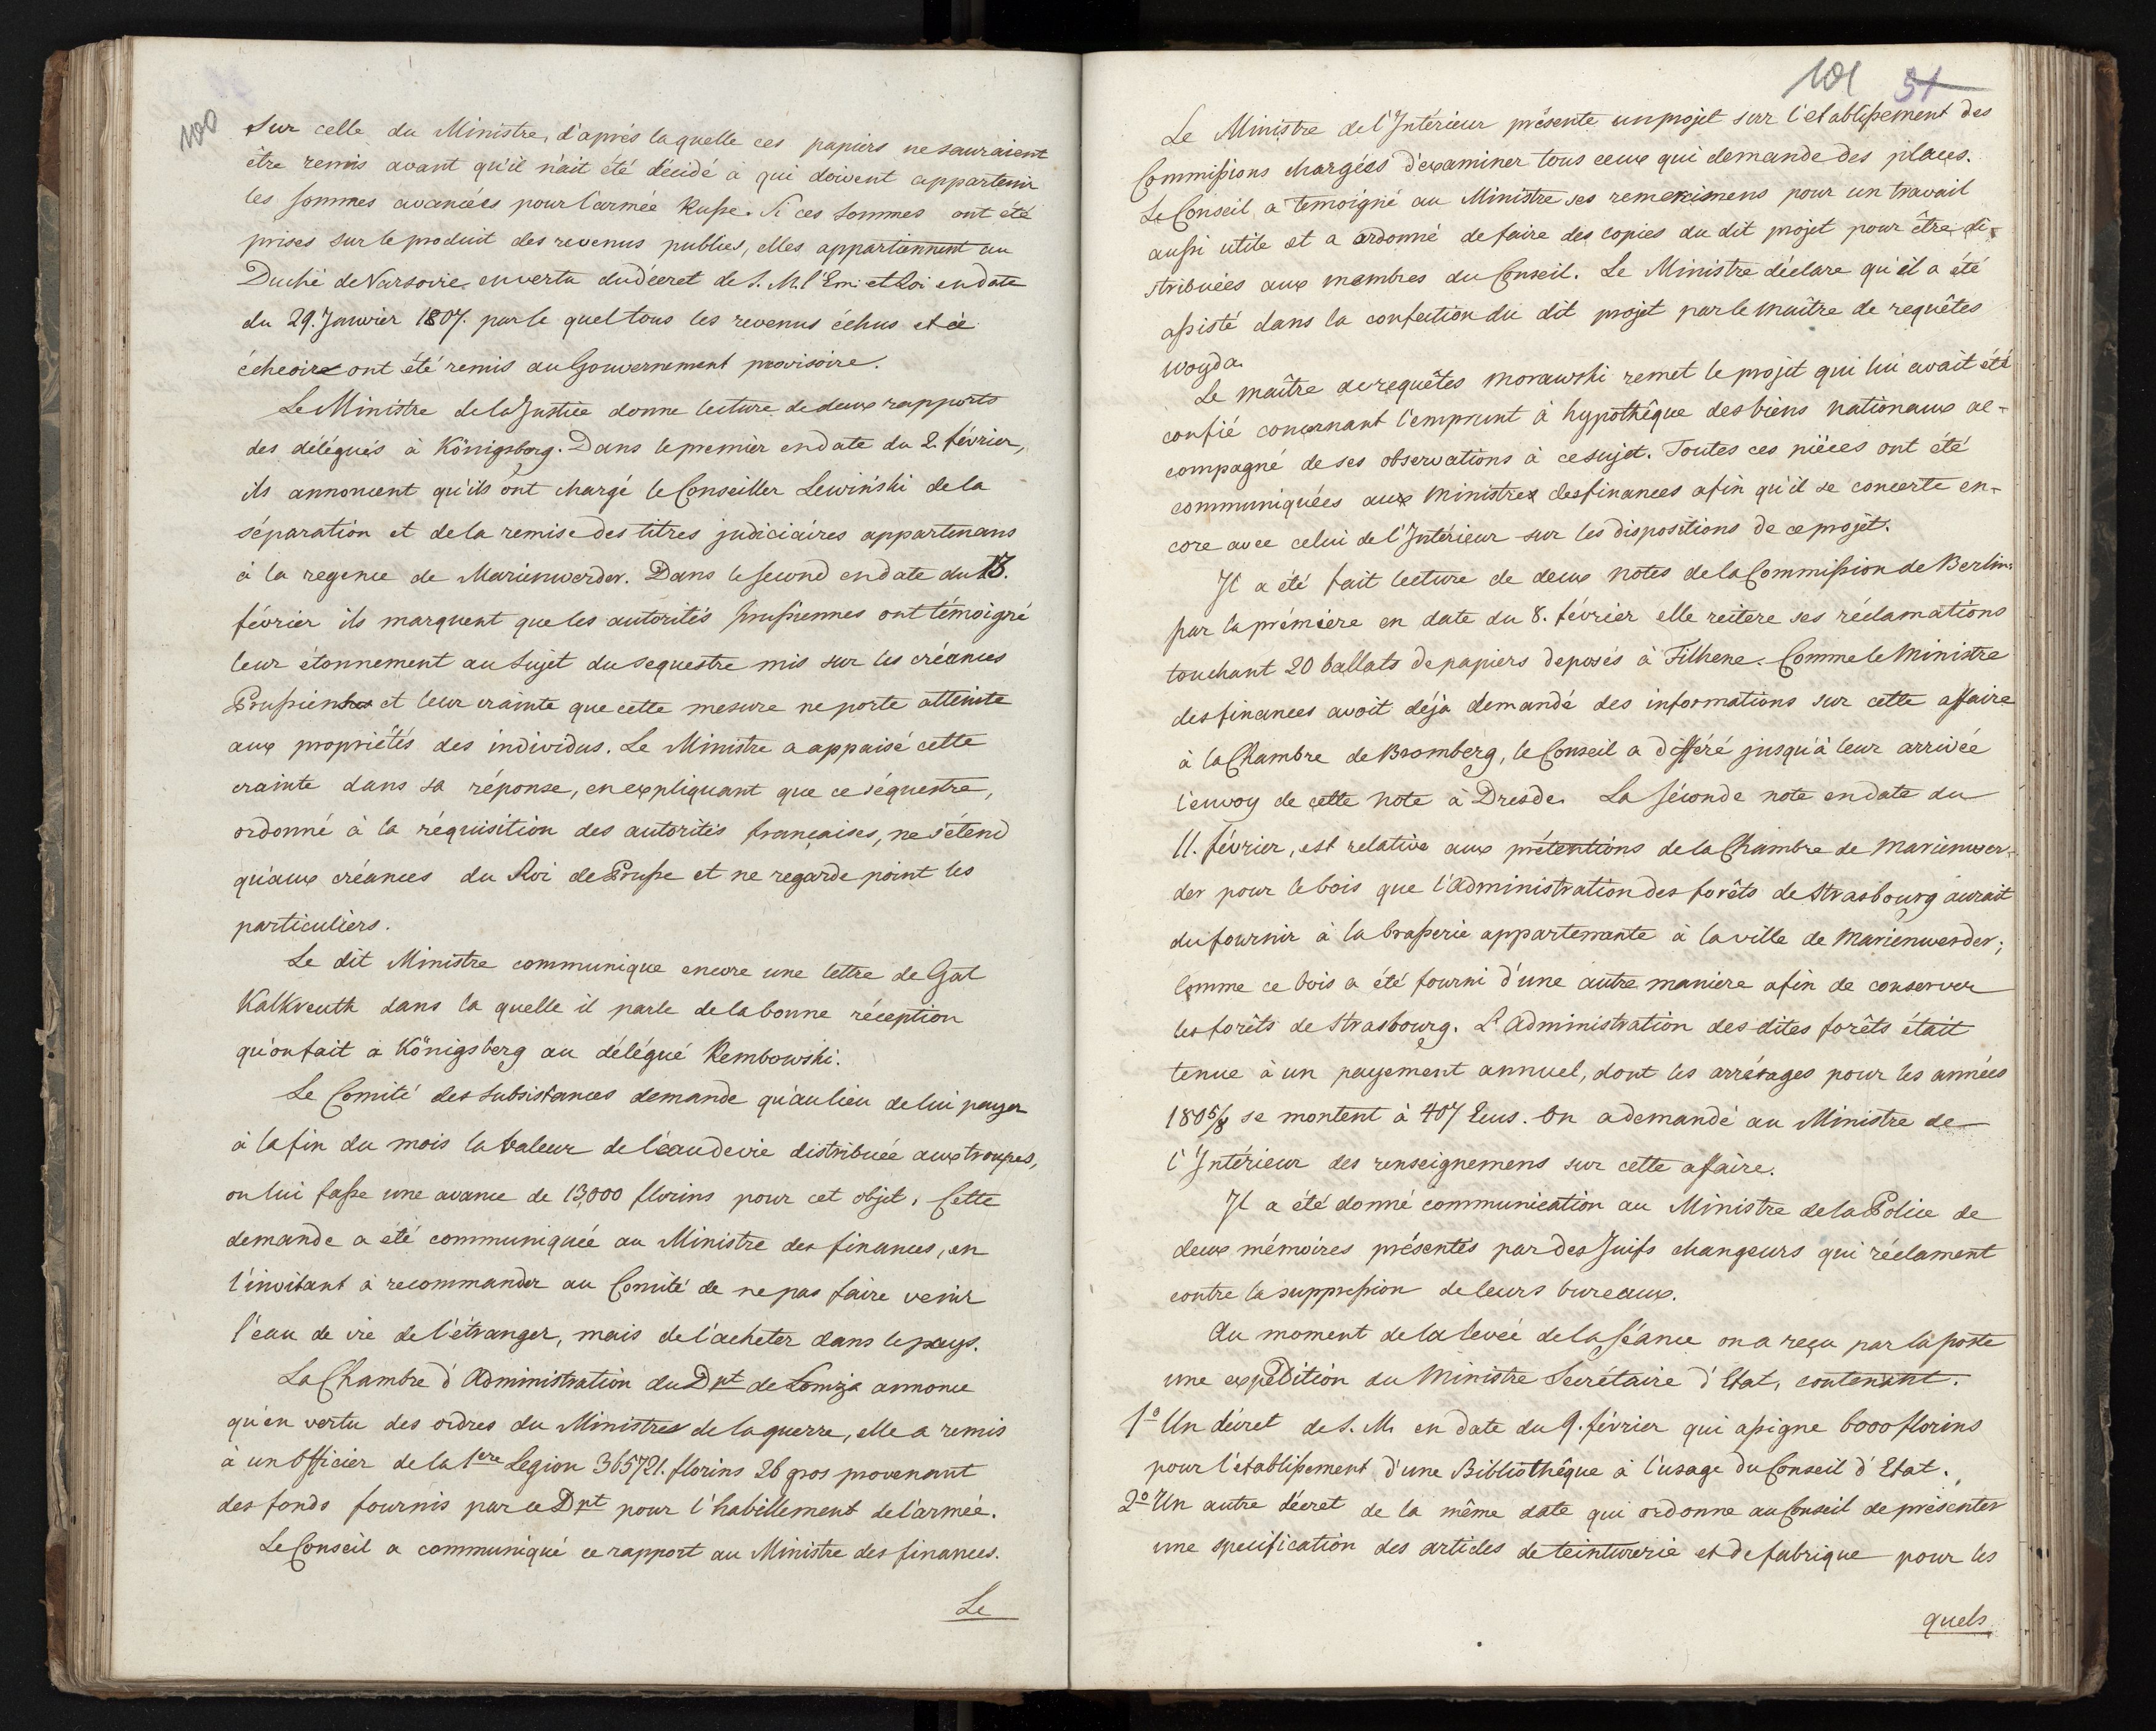 100
sur celle du Ministre, d'aprés laquelle ces papiers ne sauraient
être remis avant qu'il n'ait été décidé a qui doivent appartenir
les sommes avancées pour l'armée Russe. Si ces sommes ont été
prises sur le produit des revenus publics, elles appartiennent au
Duché de Varsovie en vertu du décret de S. M. l'Em: et Roi en date
du 29. Janvier 1807. par le quel tous les revenus échus et à
écheoir ont été remis au Gouvernement provisoire.
Le Ministre de la Justice donne lecture de deux rapports
des délégués à Königsberg. Dans le premièr en date du 2. février,
ils annoncent qu'ils ont chargé le Conseiller Lewiński de la
séparation et de la remise des titres judiciaires appartenans
à la regence de Marienwerder. Dans le second en date du 18.
février ils marquent que les autorités prussiennes ont témoigné
leur étonnement au sujet du sequestre mis sur les créances
Prussiennes et leur crainte que cette mesure ne porte atteinte
aux propriétés des individus. Le Ministre a appaisé cette
crainte dans sa réponse, en expliquant que ce séquestre,
ordonné à la réquisition des autorités françaises, ne s'étend
qu'aux créances du Roi de Prusse et ne regarde point les
particuliers.
Le dit Ministre communique encore une lettre de Gal
Kalkreuth dans la quelle il parle de la bonne réception
qu'on fait à Königsberg au délégué Rembowski.
Le Comité des subsistances demande qu'au lieu de lui payer
à la fin du mois la valeur de l'eau de vie distribuée aux troupes,
on lui fasse une avance de 13,000 florins pour cet objet. Cette
demande a été communiquée au Ministre des finances, en
l'invitant à recommander au Comité de ne pas faire venir
l'eau de vie de l'étranger, mais de l'acheter dans le pays.
La Chambre d'Administration du Dpt de Łomża annonce
qu'en vertu des ordres du Ministre de la guerre, elle a remis
à un Officier de la 1ere Legion 365721. florins 26 gros provenant
des fonds fournis par ce Dpt pour l'habillement de l'armée.
Le Conseil a communiqué ce rapport au Ministre des finances.
Le
101 51
Le Ministre de l'Intérieur présente un projet sur l'etablissement des
Commissions chargées d'examiner tous ceux qui demande des places.
Le Conseil a temoigné au Ministre ses remercimens pour un travail
aussi utile et a ordonné de faire des copies du dit projet pour être di-
stribuées aux membres du Conseil. Le Ministre déclare qu'il a été
assisté dans la confection du dit projet par le maître de requêtes
Woyda.
Le maître de requêtes Morawski remet le projet qui lui avait été
confié concernant l'emprunt à hypothêque des biens nationaux ac-
compagné de ses observations à ce sujet. Toutes ces pièces ont été
communiquées aux Ministre des finances afin qu'il se concerte en-
core avec celui de l'Intérieur sur les dispositions de ce projet.
Il a été fait lecture de deux notes de la Commission de Berlin.
par la première en date du 8. février elle reitere ses réclamations
touchant 20 ballots de papiers deposés à Filhene. Comme le Ministre
des finances avoit déjà demandé des informations sur cette affaire
à la Chambre de Bromberg, le Conseil a différé jusqu'à leur arrivée
l'envoy de cette note à Dresde. La séconde note en date du
11. février, est relative aux prétentions de la Chambre de Marienwer-
der pour le bois que l'Administration des forêts de Strasbourg aurait
du fournir à la brasserie appartenante à la ville de Marienwerder;
Comme ce bois a été fourni d'une autre maniere afin de conserver
les forêts de Strasbourg. L'Administration des dites forêts était
tenue à un payement annuel, dont les arrérages pour les années
1806/8 se montent à 407 Ecus. On a demandé au Ministre de
l'Intérieur des renseignemens sur cette affaire.
Il a été donné communication au Ministre de la Police de
deux mémoires présentés par des Juifs changeurs qui réclament
contre la suppression de leurs bureaux.
Au moment de la levée de la séance on a reçu par la poste
une expédition du Ministre Secrétaire d'Etat, contenant.
1º Un décret de S. M. en date du 9. février qui assigne 6000 florins
pour l'établissement d'une Bibliothêque à l'usage du Conseil d'Etat.
2º Un autre décret de la même date qui ordonne au Conseil de présenter
une specification des articles de teinturerie et de fabrique pour les
quels